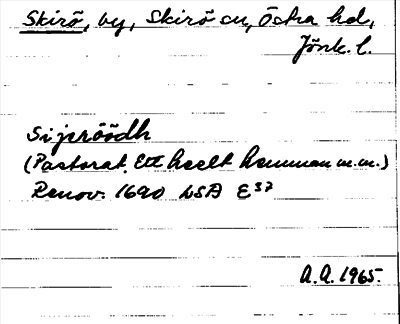 Skirö, by, Skirö sn, Östra hd,
Jönk. l.
Sijeröödh
(Pastorat. Ett heelt hemman m.m.)
Renov. 1690 LSA E37
A.A. 1965.